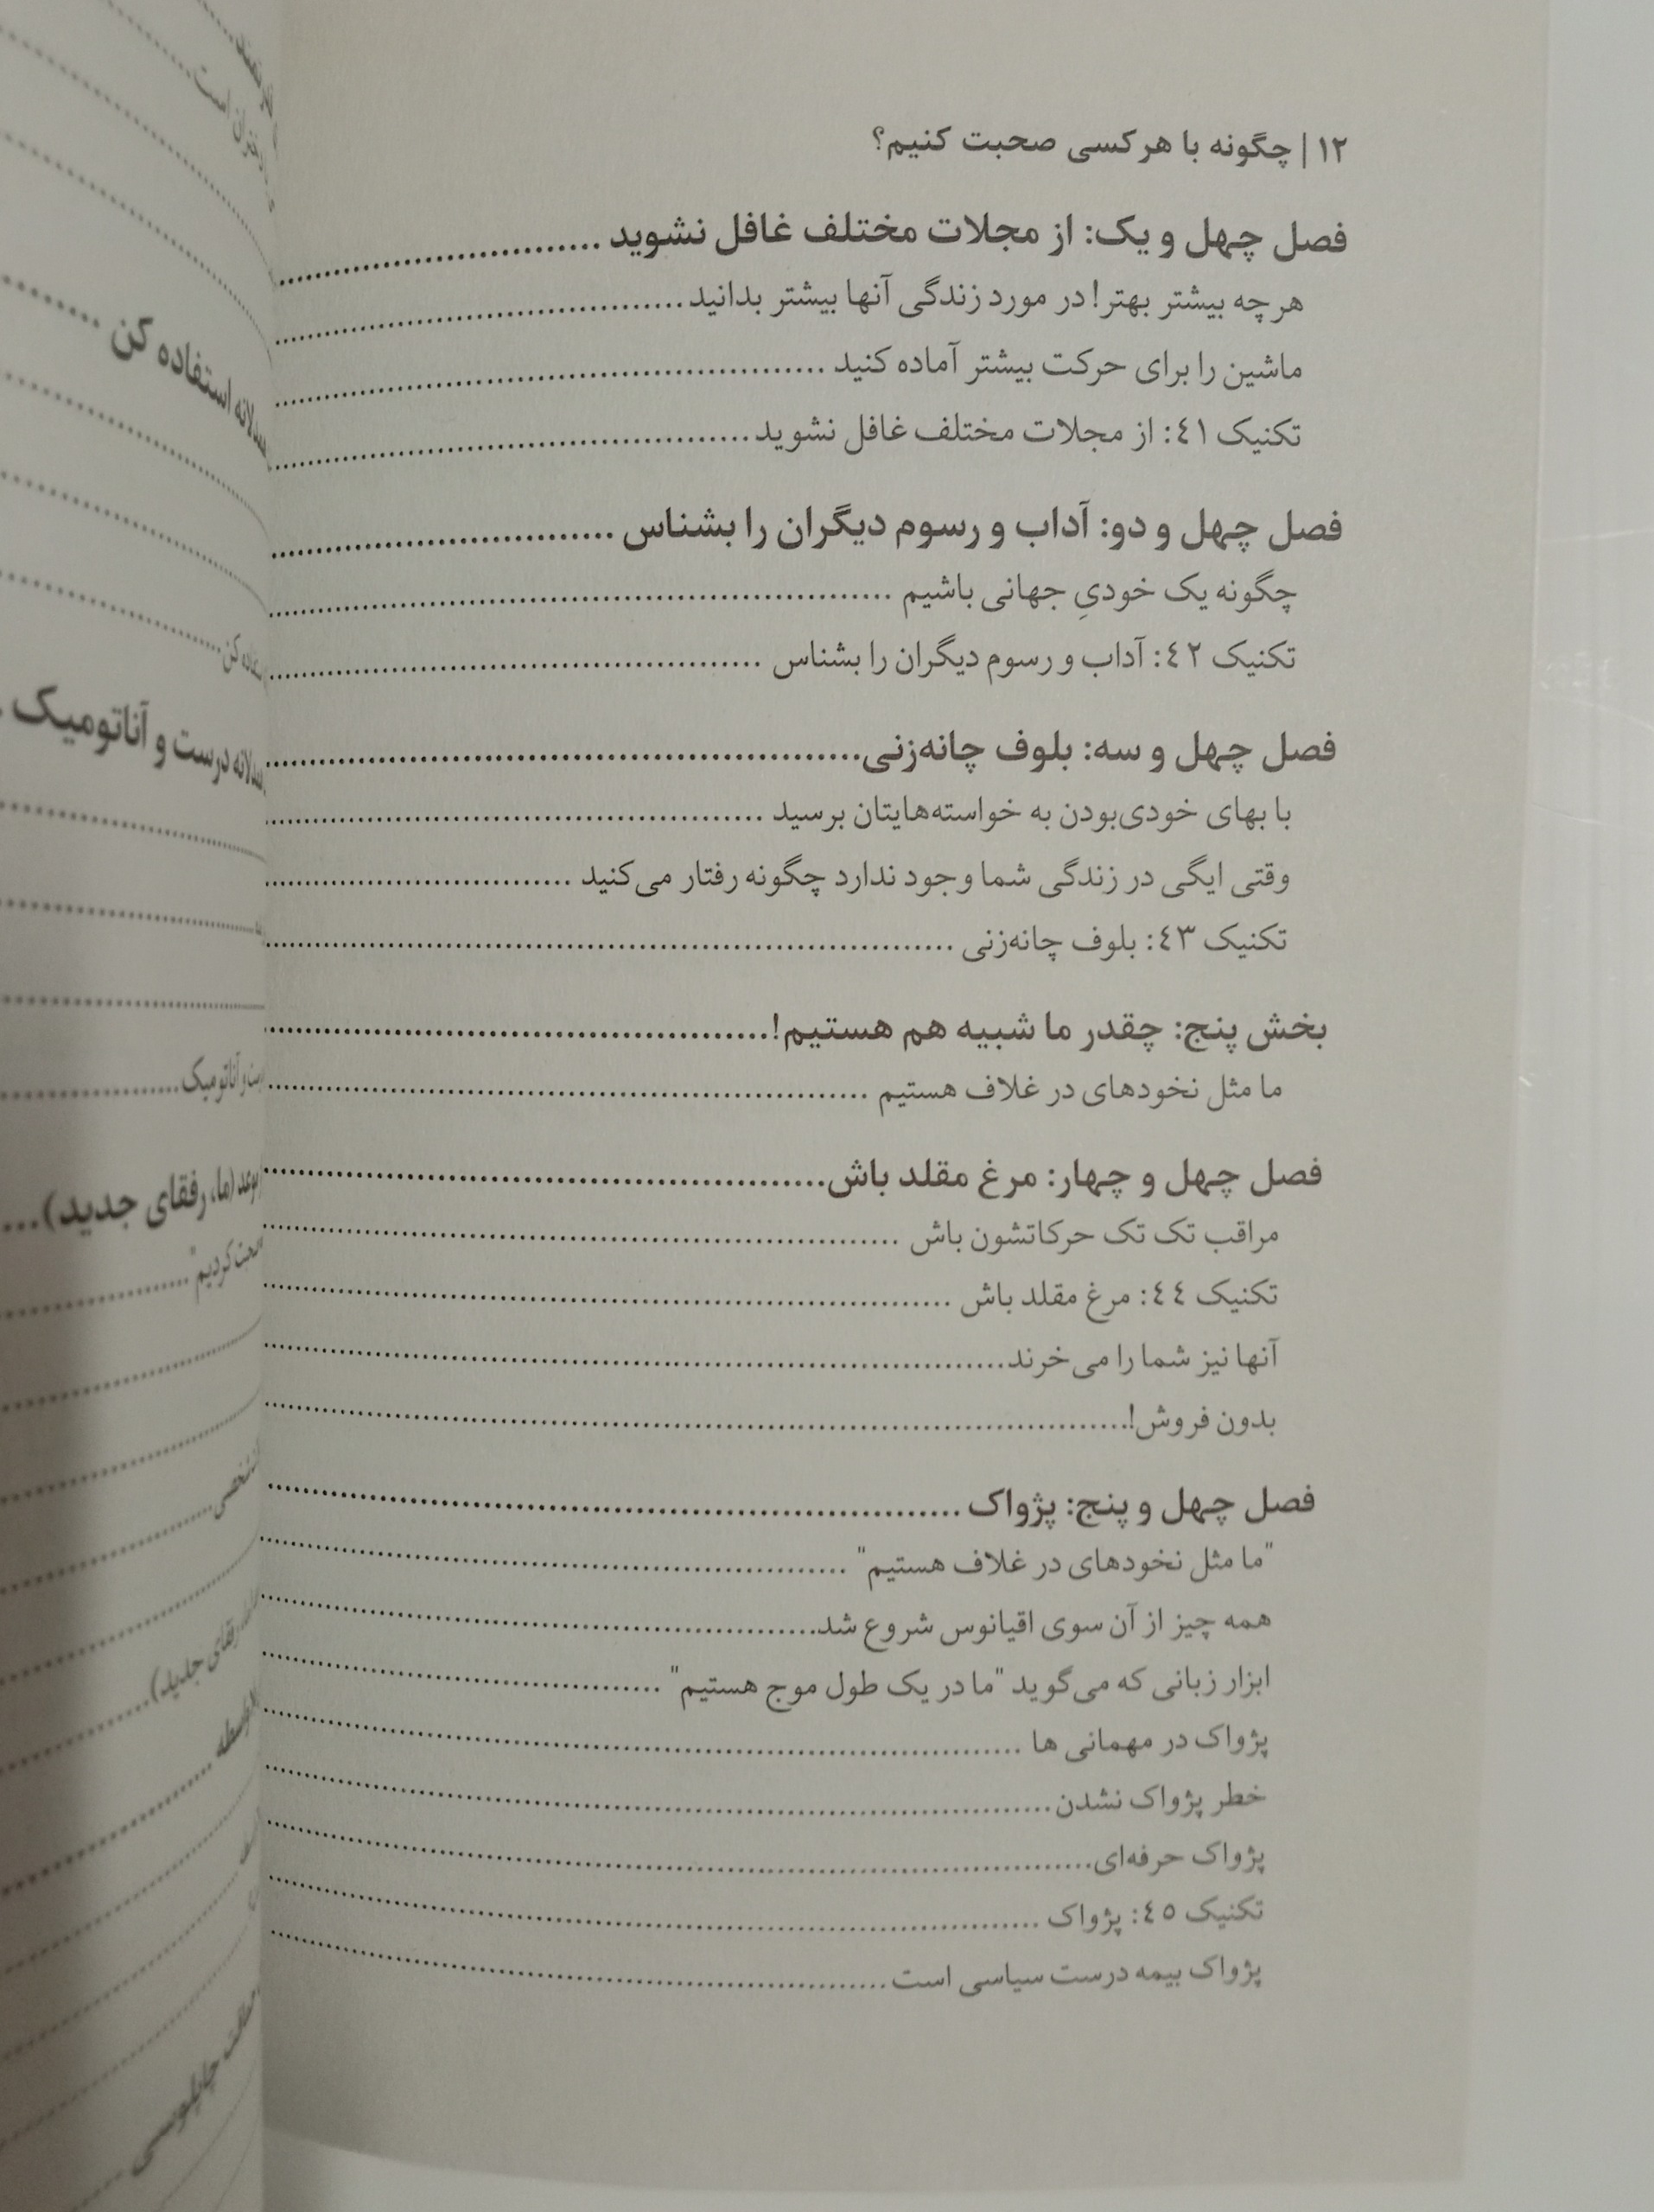 ۱۲ | چگونه با هر کسی صحبت کنیم؟
فصل چهل و یک: از مجلات مختلف غافل نشوید
هر چه بیشتر بهتر! در مورد زندگی آنها بیشتر بدانید
ماشین را برای حرکت بیشتر آماده کنید
تکنیک ٤١: از مجلات مختلف غافل نشوید
فصل چهل و دو: آداب و رسوم دیگران را بشناس
چگونه یک خودیِ جهانی باشیم
تکنیک ٤٢: آداب و رسوم دیگران را بشناس
فصل چهل و سه: بلوف چانه‌زنی
با بهای خودی‌بودن به خواسته‌هایتان برسید
وقتی ایگی در زندگی شما وجود ندارد چگونه رفتار می‌کنید
تکنیک ٤٣: بلوف چانه‌زنی
بخش پنج: چقدر ما شبیه هم هستیم!
ما مثل نخودهای در غلاف هستیم
فصل چهل و چهار: مرغ مقلد باش
مراقب تک تک حرکاتشون باش
تکنیک ٤٤: مرغ مقلد باش
آنها نیز شما را می‌خرند
بدون فروش!
فصل چهل و پنج: پژواک
"ما مثل نخودهای در غلاف هستیم"
همه چیز از آن سوی اقیانوس شروع شد
ابزار زبانی که می‌گوید "ما در یک طول موج هستیم"
پژواک در مهمانی ها
خطر پژواک نشدن
پژواک حرفه‌ای
تکنیک ٤٥: پژواک
پژواک بیمه درست سیاسی است
است
استفاده کن
درست و آناتومیک
و آناتومیک
(ما، رفقای جدید)
کردیم"
جدید)
چاپلوسی